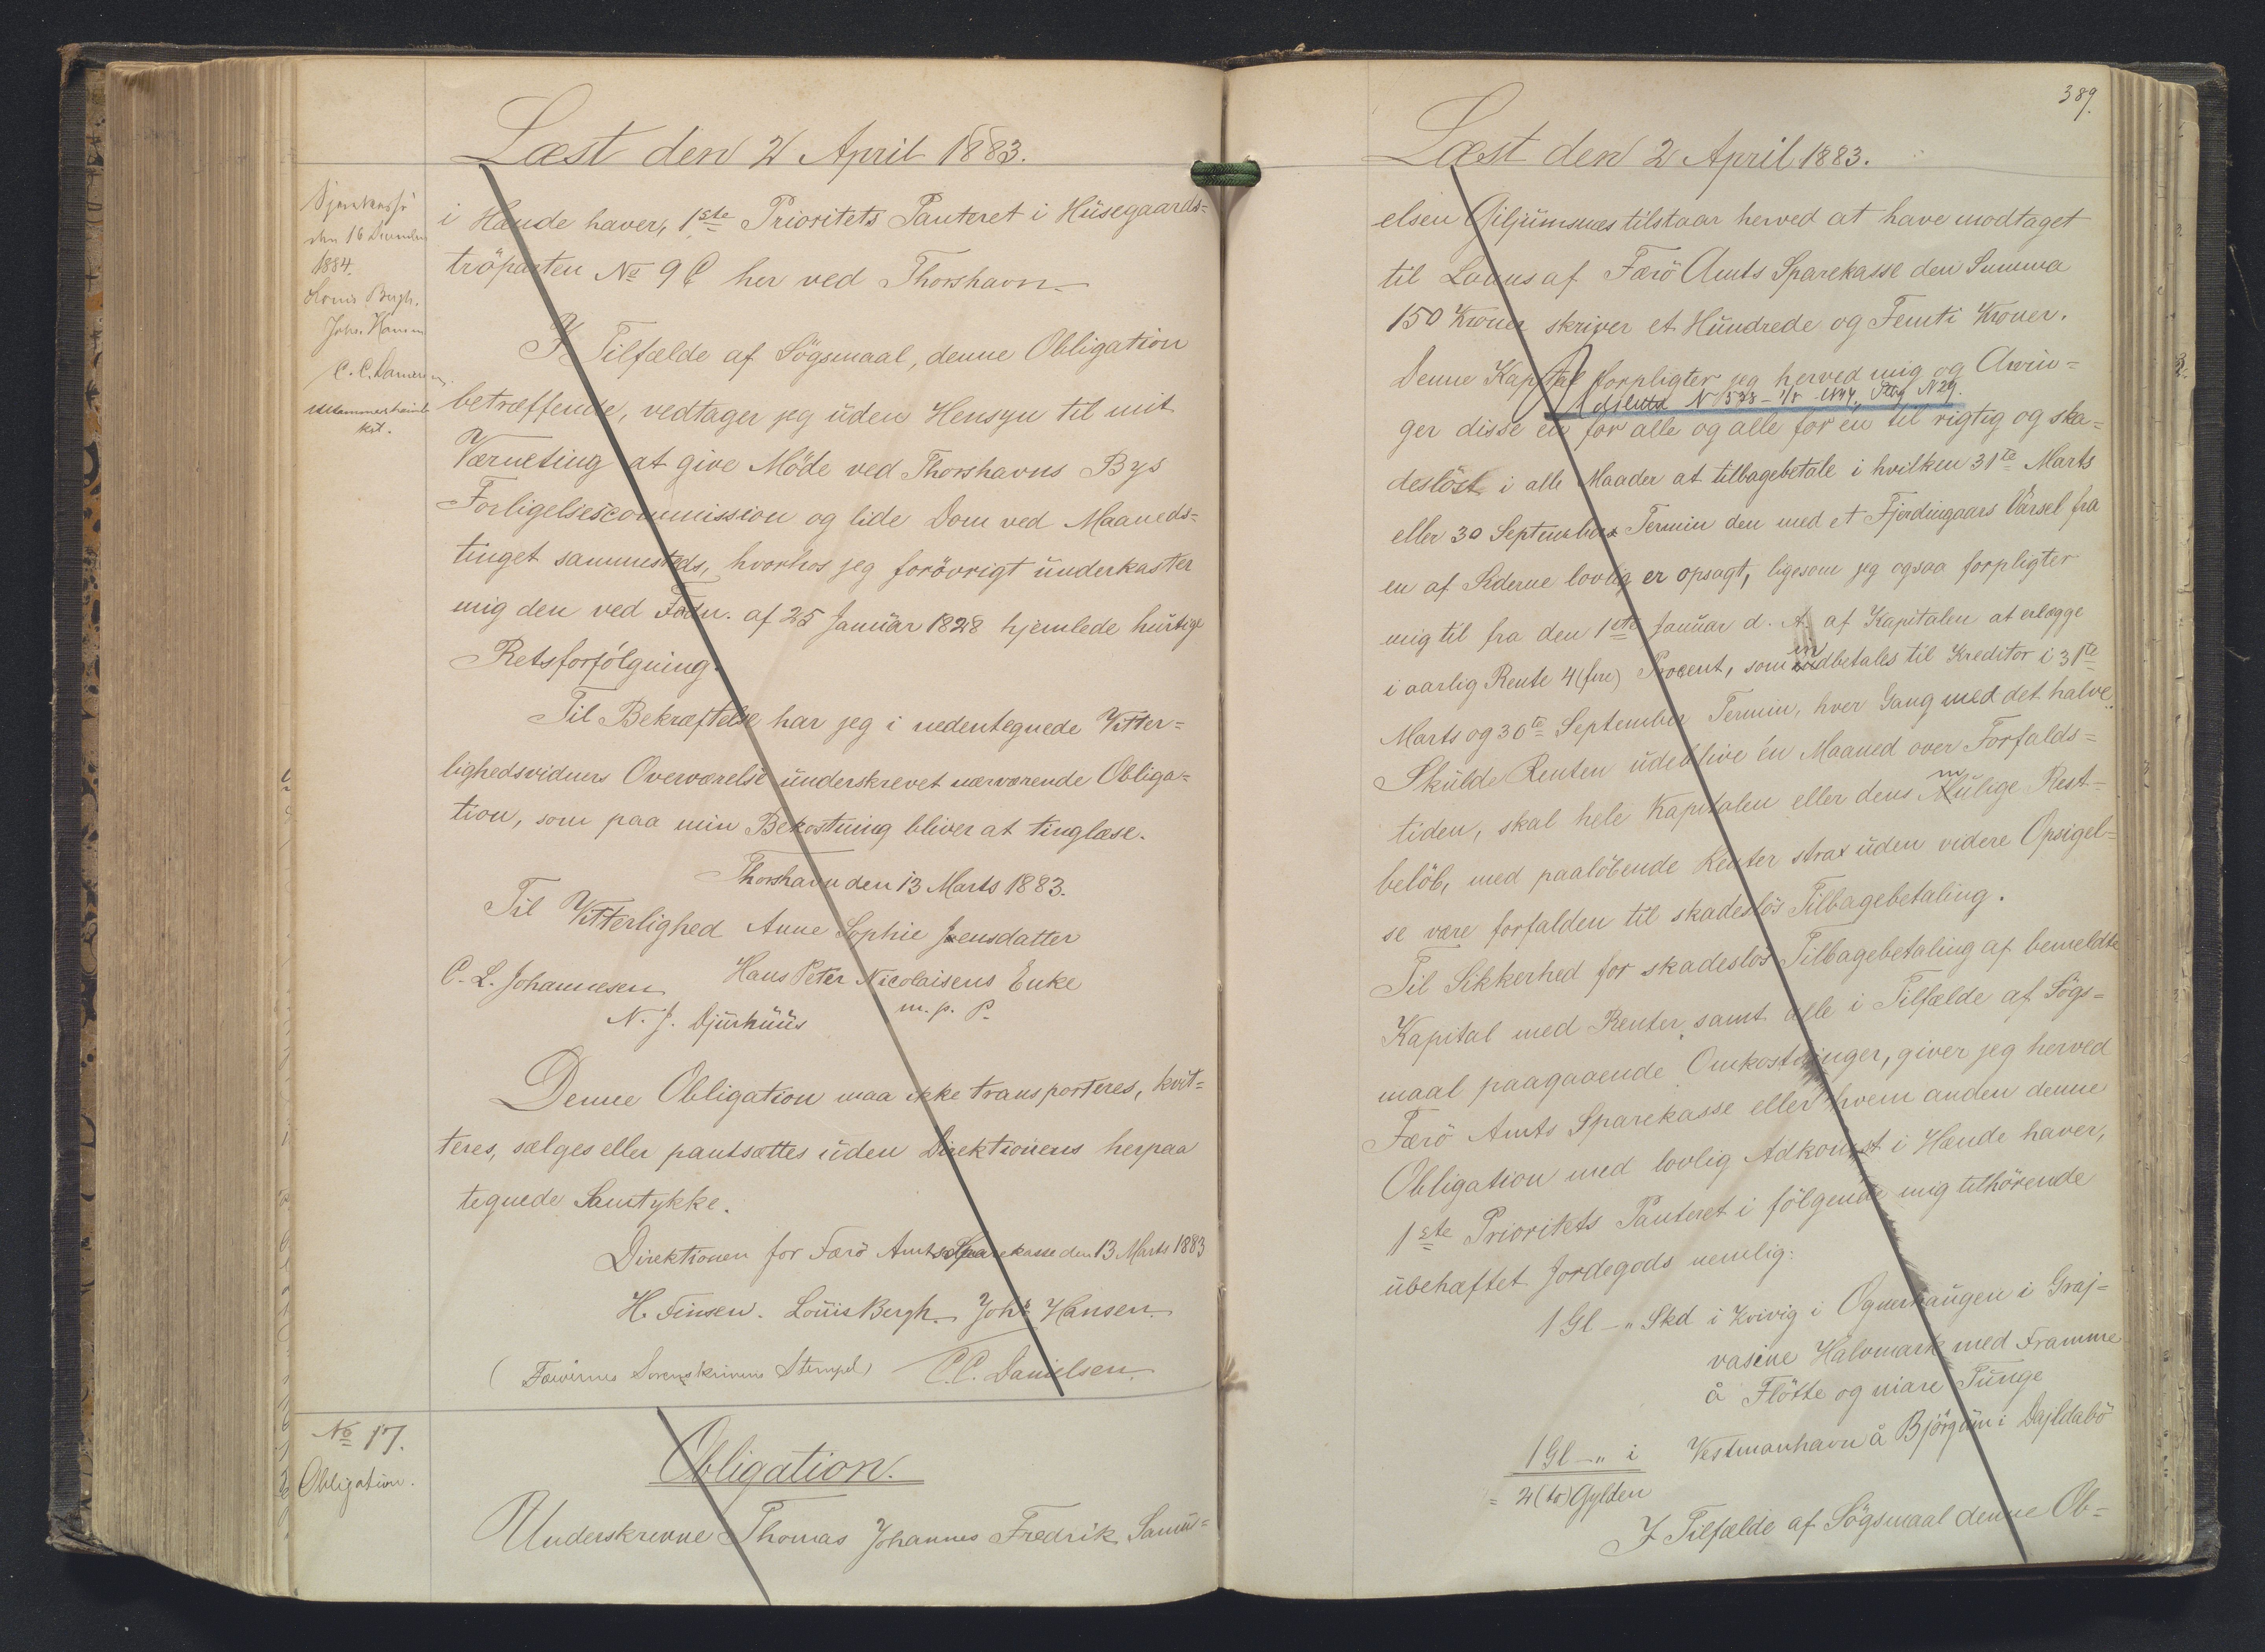 Læst den 2 April 1883.
den 16 December
1884.
Louis Bergh.
Johs. Hansen
C. C. Danielsen
i Hænde haver, 1ste Prioritets Panteret i Hüsegaards=
tröparten No 9 C her ved Thorshavn.
I Tilfælde af Sögsmaal, denne Obligation
betræffende, vedtager jeg üden Hensyn til mit
Værneting at give Möde ved Thorshavns Bys
Forligelsescommission og lide Dom ved Maaneds=
tinget sammesteds, hvorhos jeg forövrigt ünderkaster
mig den ved Fodn. af 25 Janüar 1828 hjemlede hürtige
Retsforfölgning.
Til Bekræftelse har jeg i nedentegnede Vitter=
lighedsvidners Overværelse ünderskrevet nærværende Obliga=
tion, som paa min Bekostning bliver at tinglæse.
Thorshavn den 13 Marts 1883.
Til Vitterlighed Anne Sophie Jensdatter
C. L. Johannesen Hans Peter Nicolaisens Enke
N. J. Djürhüüs m. p. P.
Denne Obligation maa ikke transporteres, kvit=
teres, sælges eller pantsættes üden Direktionens herpaa
tegnede Samtykke.
Direktionen for Færö Amts Sparekasse den 13 Marts 1883
H. Finsen. Loüis Bergh. Johs Hansen.
(Færöernes Sorenskriveris Stempel) C. C. Danielsen.
No 17.
Obligation.
Obligation.
Underskrevne Thomas Johannes Fredrik Samü=
389.
Læst den 2 April 1883.
elsen Giljümsnes tilstaar herved at have modtaget
til Laans af Færö Amts Sparekasse den Summa
150 Kroner skriver et Hündrede og Femti Kroner.
Denne Kapital forpligter jeg herved mig og Arvin=
N 29.
ger disse en for alle og alle for én til rigtig og ska=
deslöst i alle Maader at tilbagebetale i hvilken 31te Marts
eller 30 Septembers Termin den med et Fjerdingaars Varsel fra
en af Siderne lovlig er opsagt, ligesom jeg ogsaa forpligter
mig til fra den 1ste Janüar d. A. af Kapitalen at erlægge
i aarlig Rente 4 (fire) Procent, som indbetales til Kreditor i 31te
Marts og 30te September Termin, hver Gang med det halve.
Skülde Renten üdeblive én Maaned over Forfalds=
tiden, skal hele Kapitalen eller dens mülige Rest=
belöb, med paalöbende Renter strax üden videre Opsigel=
se være forfalden til skadeslös Tilbagebetaling.
Til Sikkerhed for skadeslös Tilbagebetaling af bemeldte
Kapital med Renter samt alle i Tilfælde af Sögs=
maal paagaaende Omkostninger, giver jeg herved
Færö Amts Sparekasse eller hvem anden denne
Obligation med lovlig Adkomst i Hænde haver,
1ste Prioritets Panteret i fölgende mig tilhörende
übehæftet Jordegods nemlig:
1 Gl – „ Skd i Kvivig i Ognerhaügen i Graj=
vasine Halvmark med Framme
å Flötte og niare Tünge
1 Gl – „ i Vestmanhavn å Björgüm i Dajldabö
= 2 (to) Gylden
I Tilfælde af Sögsmaal denne Ob=